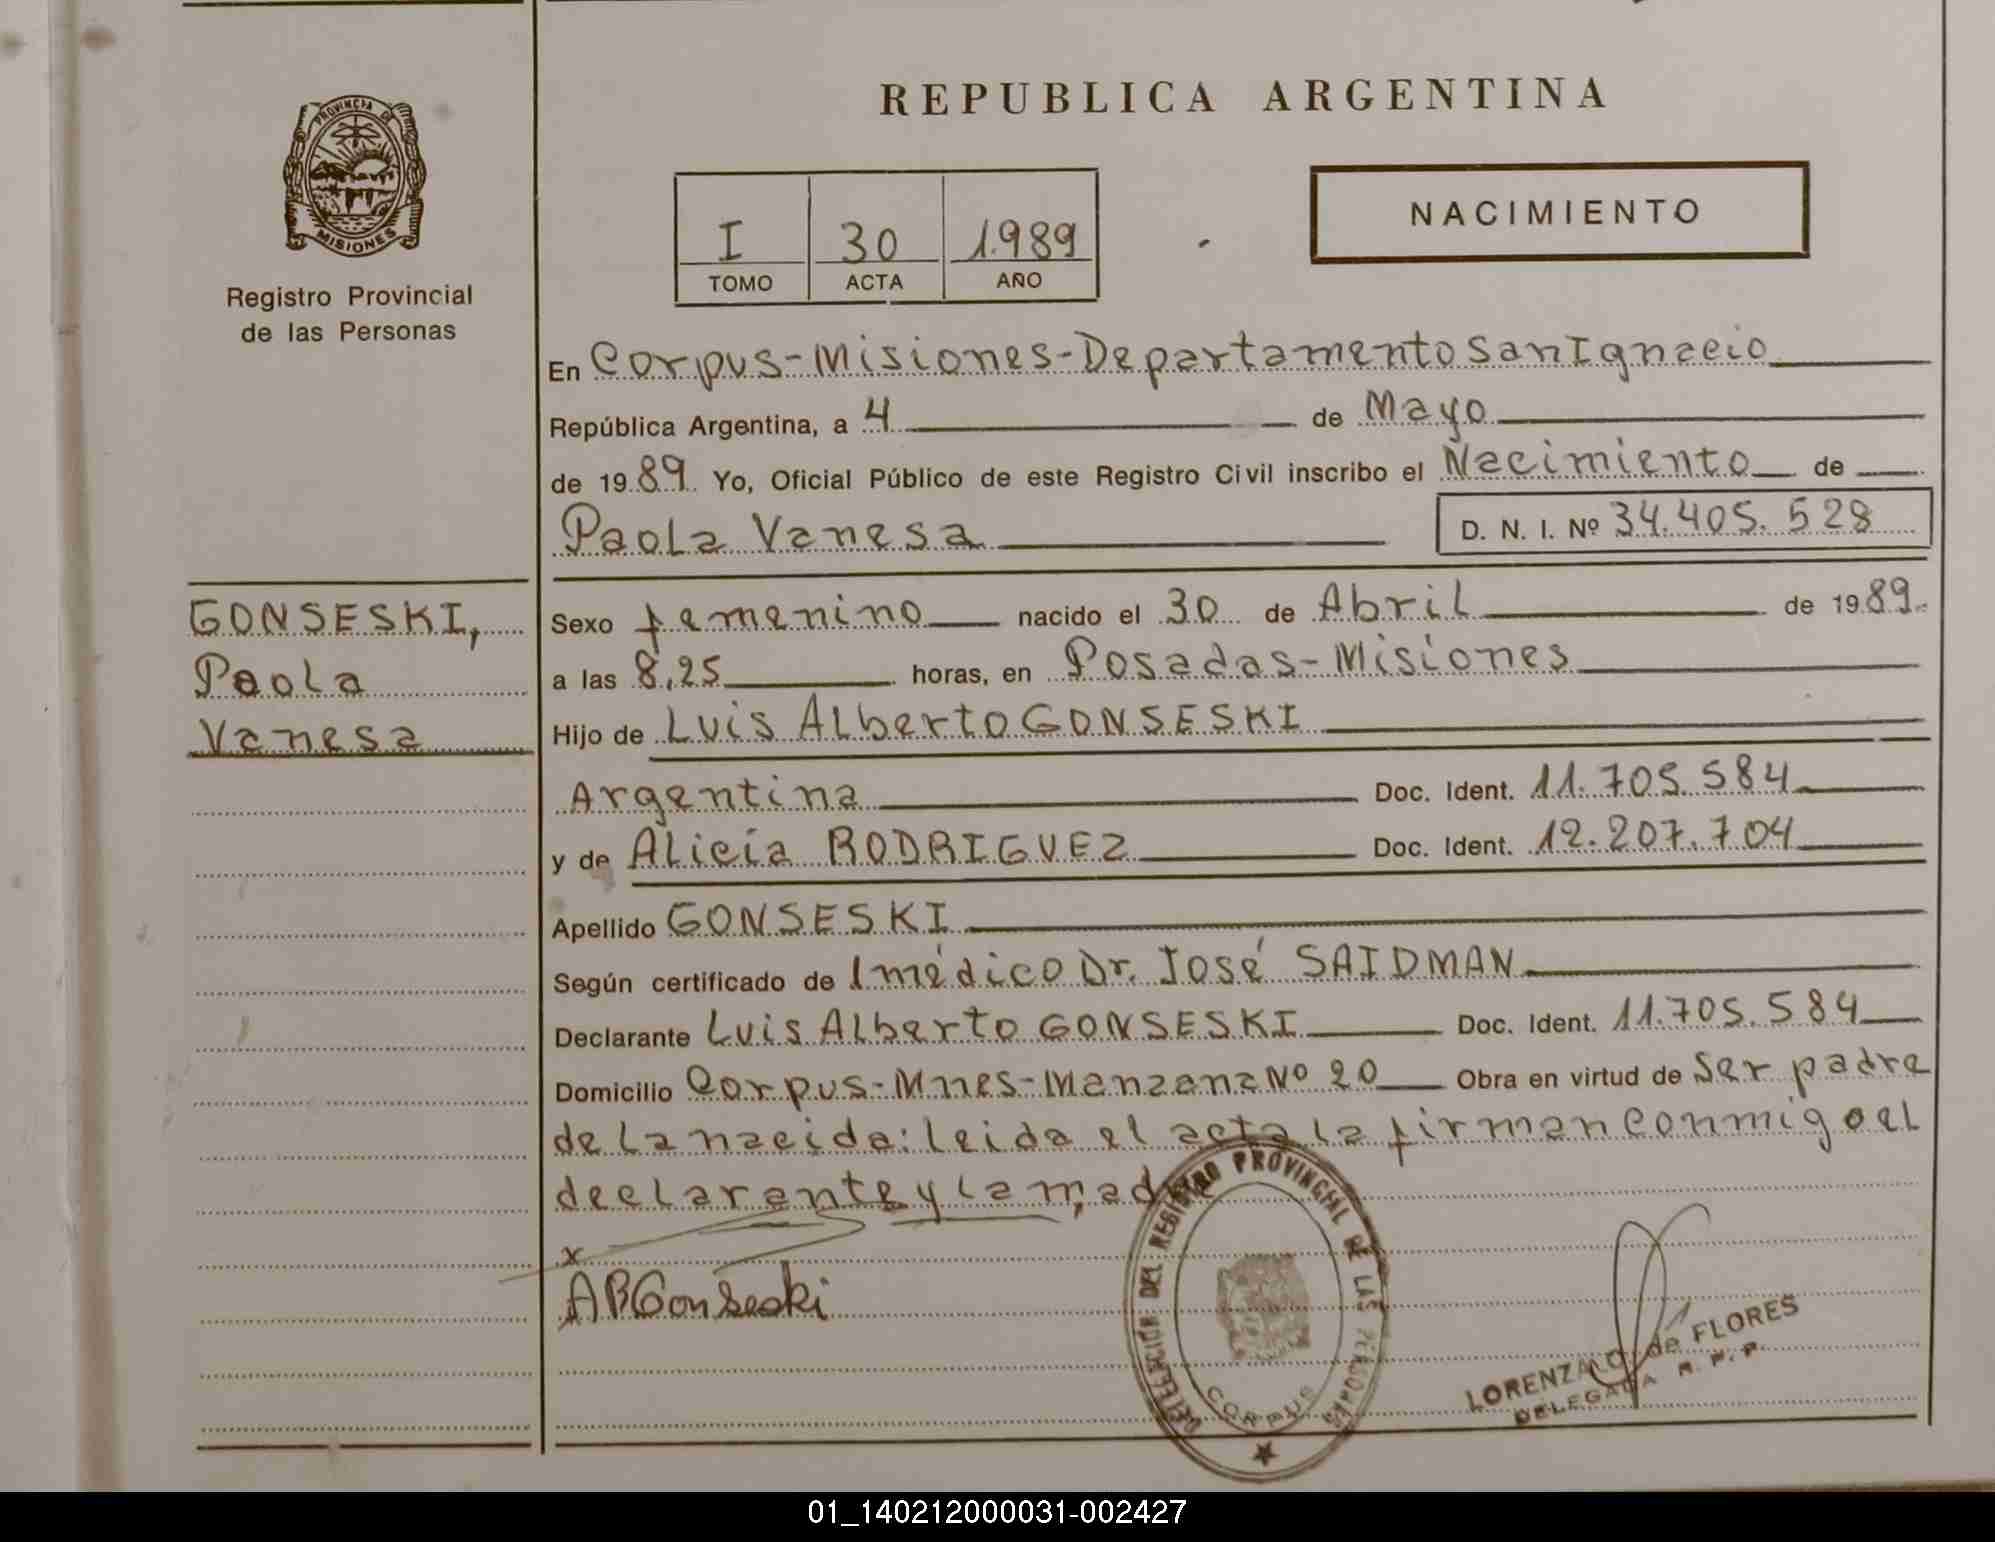 REPUBLICA ARGENTINA
PROVINCIA DE
MISIONES
Registro Provincial
de las Personas
I 30 1.989
TOMO ACTA AÑO
NACIMIENTO
En Corpus-Misiones-Departamento San Ignacio
República Argentina, a 4 de Mayo
de 1989. Yo, Oficial Público de este Registro Civil inscribo el Nacimiento de
Paola Vanesa D. N. I. Nº 34.405.528
GONSESKI,
Paola
Vanesa
Sexo femenino nacido el 30 de Abril de 1989.
a las 8,25 horas, en Posadas-Misiones
Hijo de Luis Alberto GONSESKI
Argentina Doc. Ident. 11.705.584
y de Alicia RODRIGUEZ Doc. Ident. 12.207.704
Apellido GONSESKI
Según certificado de l médico Dr. José SAIDMAN
Declarante Luis Alberto GONSESKI Doc. Ident. 11.705.584
Domicilio Corpus-Mnes-Manzana Nº 20 Obra en virtud de Ser padre
de la nacida: leida el acta la firman conmigo el
declarante y la madre
x
ABGonseski
DELEGACIÓN DEL REGISTRO PROVINCIAL DE LAS PERSONAS
CORPUS
LORENZA de FLORES
DELEGADA R. P. P.
01_140212000031-002427